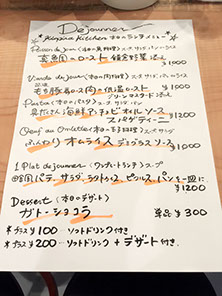 Déjeuner
Kinpira Kitchen 本日のランチメニュー
Poisson du jour (本日の魚料理) スープ サラダ パン or ライス
真鯛のロースト 鎌倉野菜添え
¥1000
Viande du jour (本日の肉料理) スープ サラダ パン or ライス
もち豚肩ロースの低温ロースト
グリーンマスタードソース ¥1000
Pasta (本日のパスタ) スープ サラダ パン
具だくさん海鮮アンチョビオイルソース
スパゲティーニ ¥1000
Oeuf au Omlette (本日の玉子料理) スープ サラダ
ふんわりオムライス デミグラスソース
¥1000
1 Plat dejeuner (ワンプレートランチ) スープ
パテ、サラダ、ラタトゥイユ、ピクルス、パンを一皿に
¥1200
Dessert (本日のデザート)
ガトーショコラ 単品 ¥300
*プラス ¥100 ソフトドリンク付き
*プラス ¥200 ソフトドリンク + デザート付き.